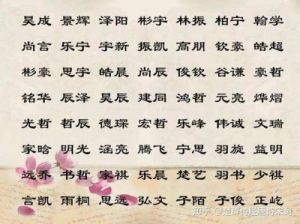 昊成 景辉 泽阳 彬宇 林振 柏宁 翰学
尚言 乐宁 宇新 振凯 高朋 钦豪 皓超
彬豪 思宇 皓晨 尚辰 俊钦 谷谦 豪哲
铭华 辰泽 昊辰 建同 鸿哲 元亮 烨熠
光哲 哲辰 德琛 宏哲 乐峰 伟诚 文瑞
家晗 明光 涵亮 腾飞 宁思 羽旋 益明
远乔 书哲 家祺 乐晨 楚艺 羽书 少祺
言凯 雨桐 思远 弘文 子陌